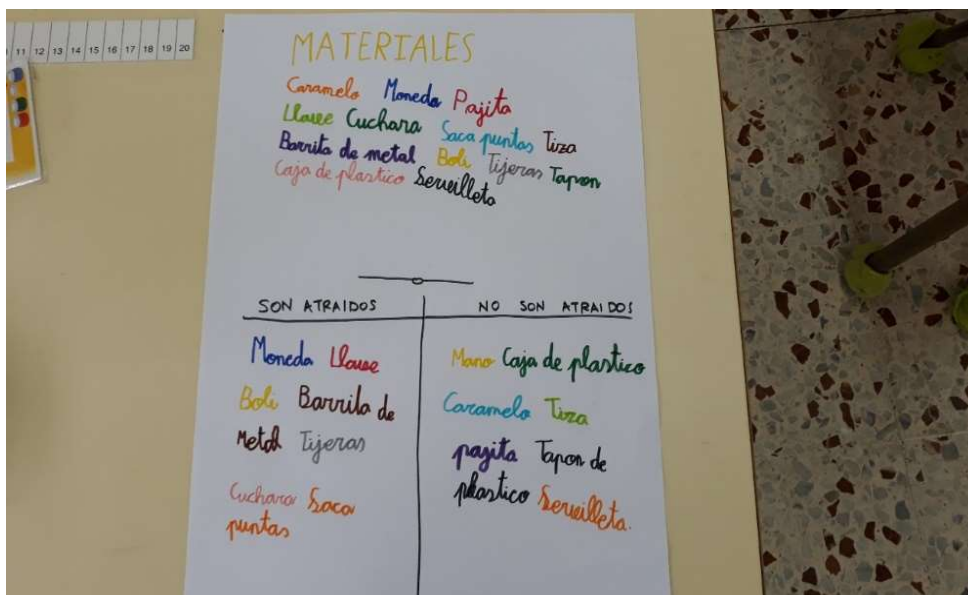 11 12 13 14 15 16 17 18 19 20
MATERIALES
Caramelo Moneda Pajita
Llave Cuchara Saca puntas Tiza
Barrita de metal Boli Tijeras Tapon
Caja de plastico Servilleta
SON ATRAIDOS
Moneda Llave
Boli Barrita de
Metal Tijeras
Cuchara Saca
puntas
NO SON ATRAIDOS
Mano Caja de plastico
Caramelo Tiza
pajita Tapon de
plastico Servilleta.